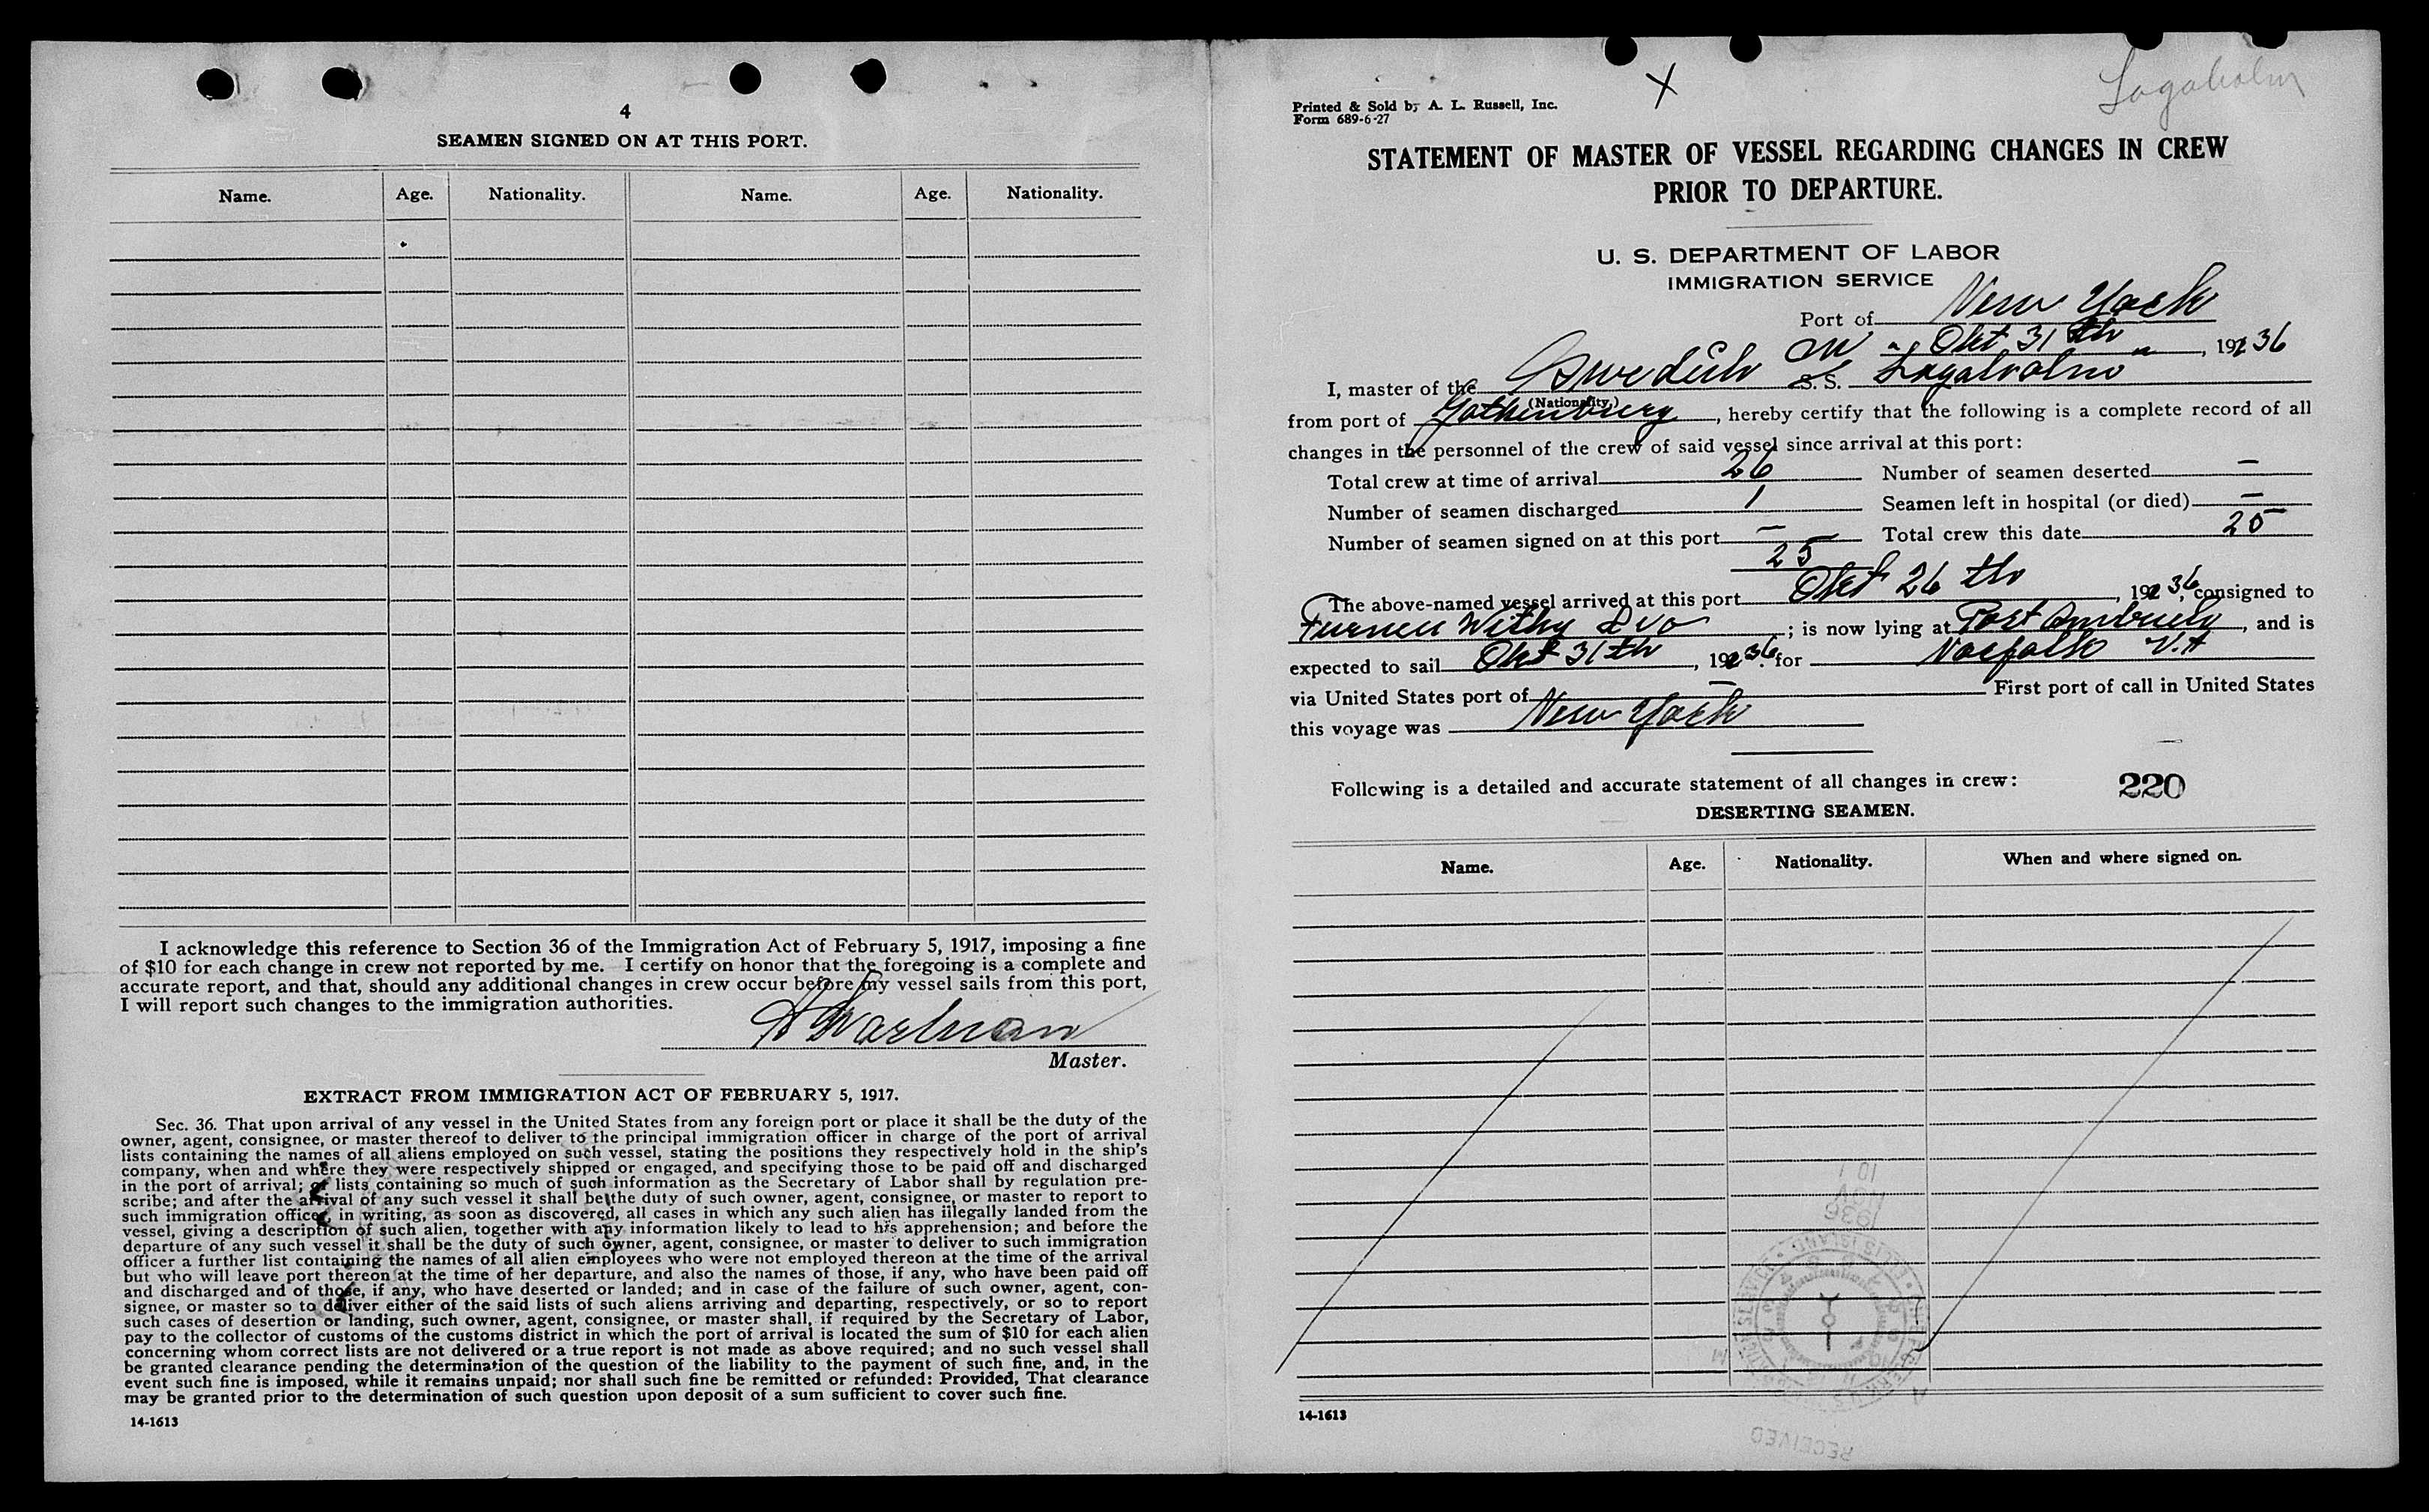 4
SEAMEN SIGNED ON AT THIS PORT.
Name. Age. Nationality. Name. Age. Nationality.
I acknowledge this reference to Section 36 of the Immigration Act of February 5, 1917, imposing a fine
of $10 for each change in crew not reported by me. I certify on honor that the foregoing is a complete and
accurate report, and that, should any additional changes in crew occur before my vessel sails from this port,
I will report such changes to the immigration authorities.
Master.
EXTRACT FROM IMMIGRATION ACT OF FEBRUARY 5, 1917.
Sec. 36. That upon arrival of any vessel in the United States from any foreign port or place it shall be the duty of the
owner, agent, consignee, or master thereof to deliver to the principal immigration officer in charge of the port of arrival
lists containing the names of all aliens employed on such vessel, stating the positions they respectively hold in the ship's
company, when and where they were respectively shipped or engaged, and specifying those to be paid off and discharged
in the port of arrival; or lists containing so much of such information as the Secretary of Labor shall by regulation pre-
scribe; and after the arrival of any such vessel it shall be the duty of such owner, agent, consignee, or master to report to
such immigration officer, in writing, as soon as discovered, all cases in which any such alien has illegally landed from the
vessel, giving a description of such alien, together with any information likely to lead to his apprehension; and before the
departure of any such vessel it shall be the duty of such owner, agent, consignee, or master to deliver to such immigration
officer a further list containing the names of all alien employees who were not employed thereon at the time of the arrival
but who will leave port thereon at the time of her departure, and also the names of those, if any, who have been paid off
and discharged and of those, if any, who have deserted or landed; and in case of the failure of such owner, agent, con-
signee, or master so to deliver either of the said lists of such aliens arriving and departing, respectively, or so to report
such cases of desertion or landing, such owner, agent, consignee, or master shall, if required by the Secretary of Labor,
pay to the collector of customs of the customs district in which the port of arrival is located the sum of $10 for each alien
concerning whom correct lists are not delivered or a true report is not made as above required; and no such vessel shall
be granted clearance pending the determination of the question of the liability to the payment of such fine, and, in the
event such fine is imposed, while it remains unpaid; nor shall such fine be remitted or refunded: Provided, That clearance
may be granted prior to the determination of such question upon deposit of a sum sufficient to cover such fine.
14-1613
Lagaholm
X
Printed & Sold by A. L. Russell, Inc.
Form 689-6-27
STATEMENT OF MASTER OF VESSEL REGARDING CHANGES IN CREW
PRIOR TO DEPARTURE.
U. S. DEPARTMENT OF LABOR
IMMIGRATION SERVICE
Port of New York
Okt 31 th, 19236
I, master of the Swedish M S. S. "Lagaholm"
(Nationality)
from port of Gothenburg, hereby certify that the following is a complete record of all
changes in the personnel of the crew of said vessel since arrival at this port:
Total crew at time of arrival 26 Number of seamen deserted —
Number of seamen discharged 1 Seamen left in hospital (or died) —
Number of seamen signed on at this port — Total crew this date 25
25
The above-named vessel arrived at this port Okt 26 th, 19236, consigned to
Furness Withy & Co; is now lying at Port, and is
expected to sail Okt 31 th, 19236 for Norfolk V.A
via United States port of — First port of call in United States
this voyage was New York
Following is a detailed and accurate statement of all changes in crew: 220
DESERTING SEAMEN.
Name. Age. Nationality. When and where signed on.
10 1
NOV
1936
RECEIVED
14-1613